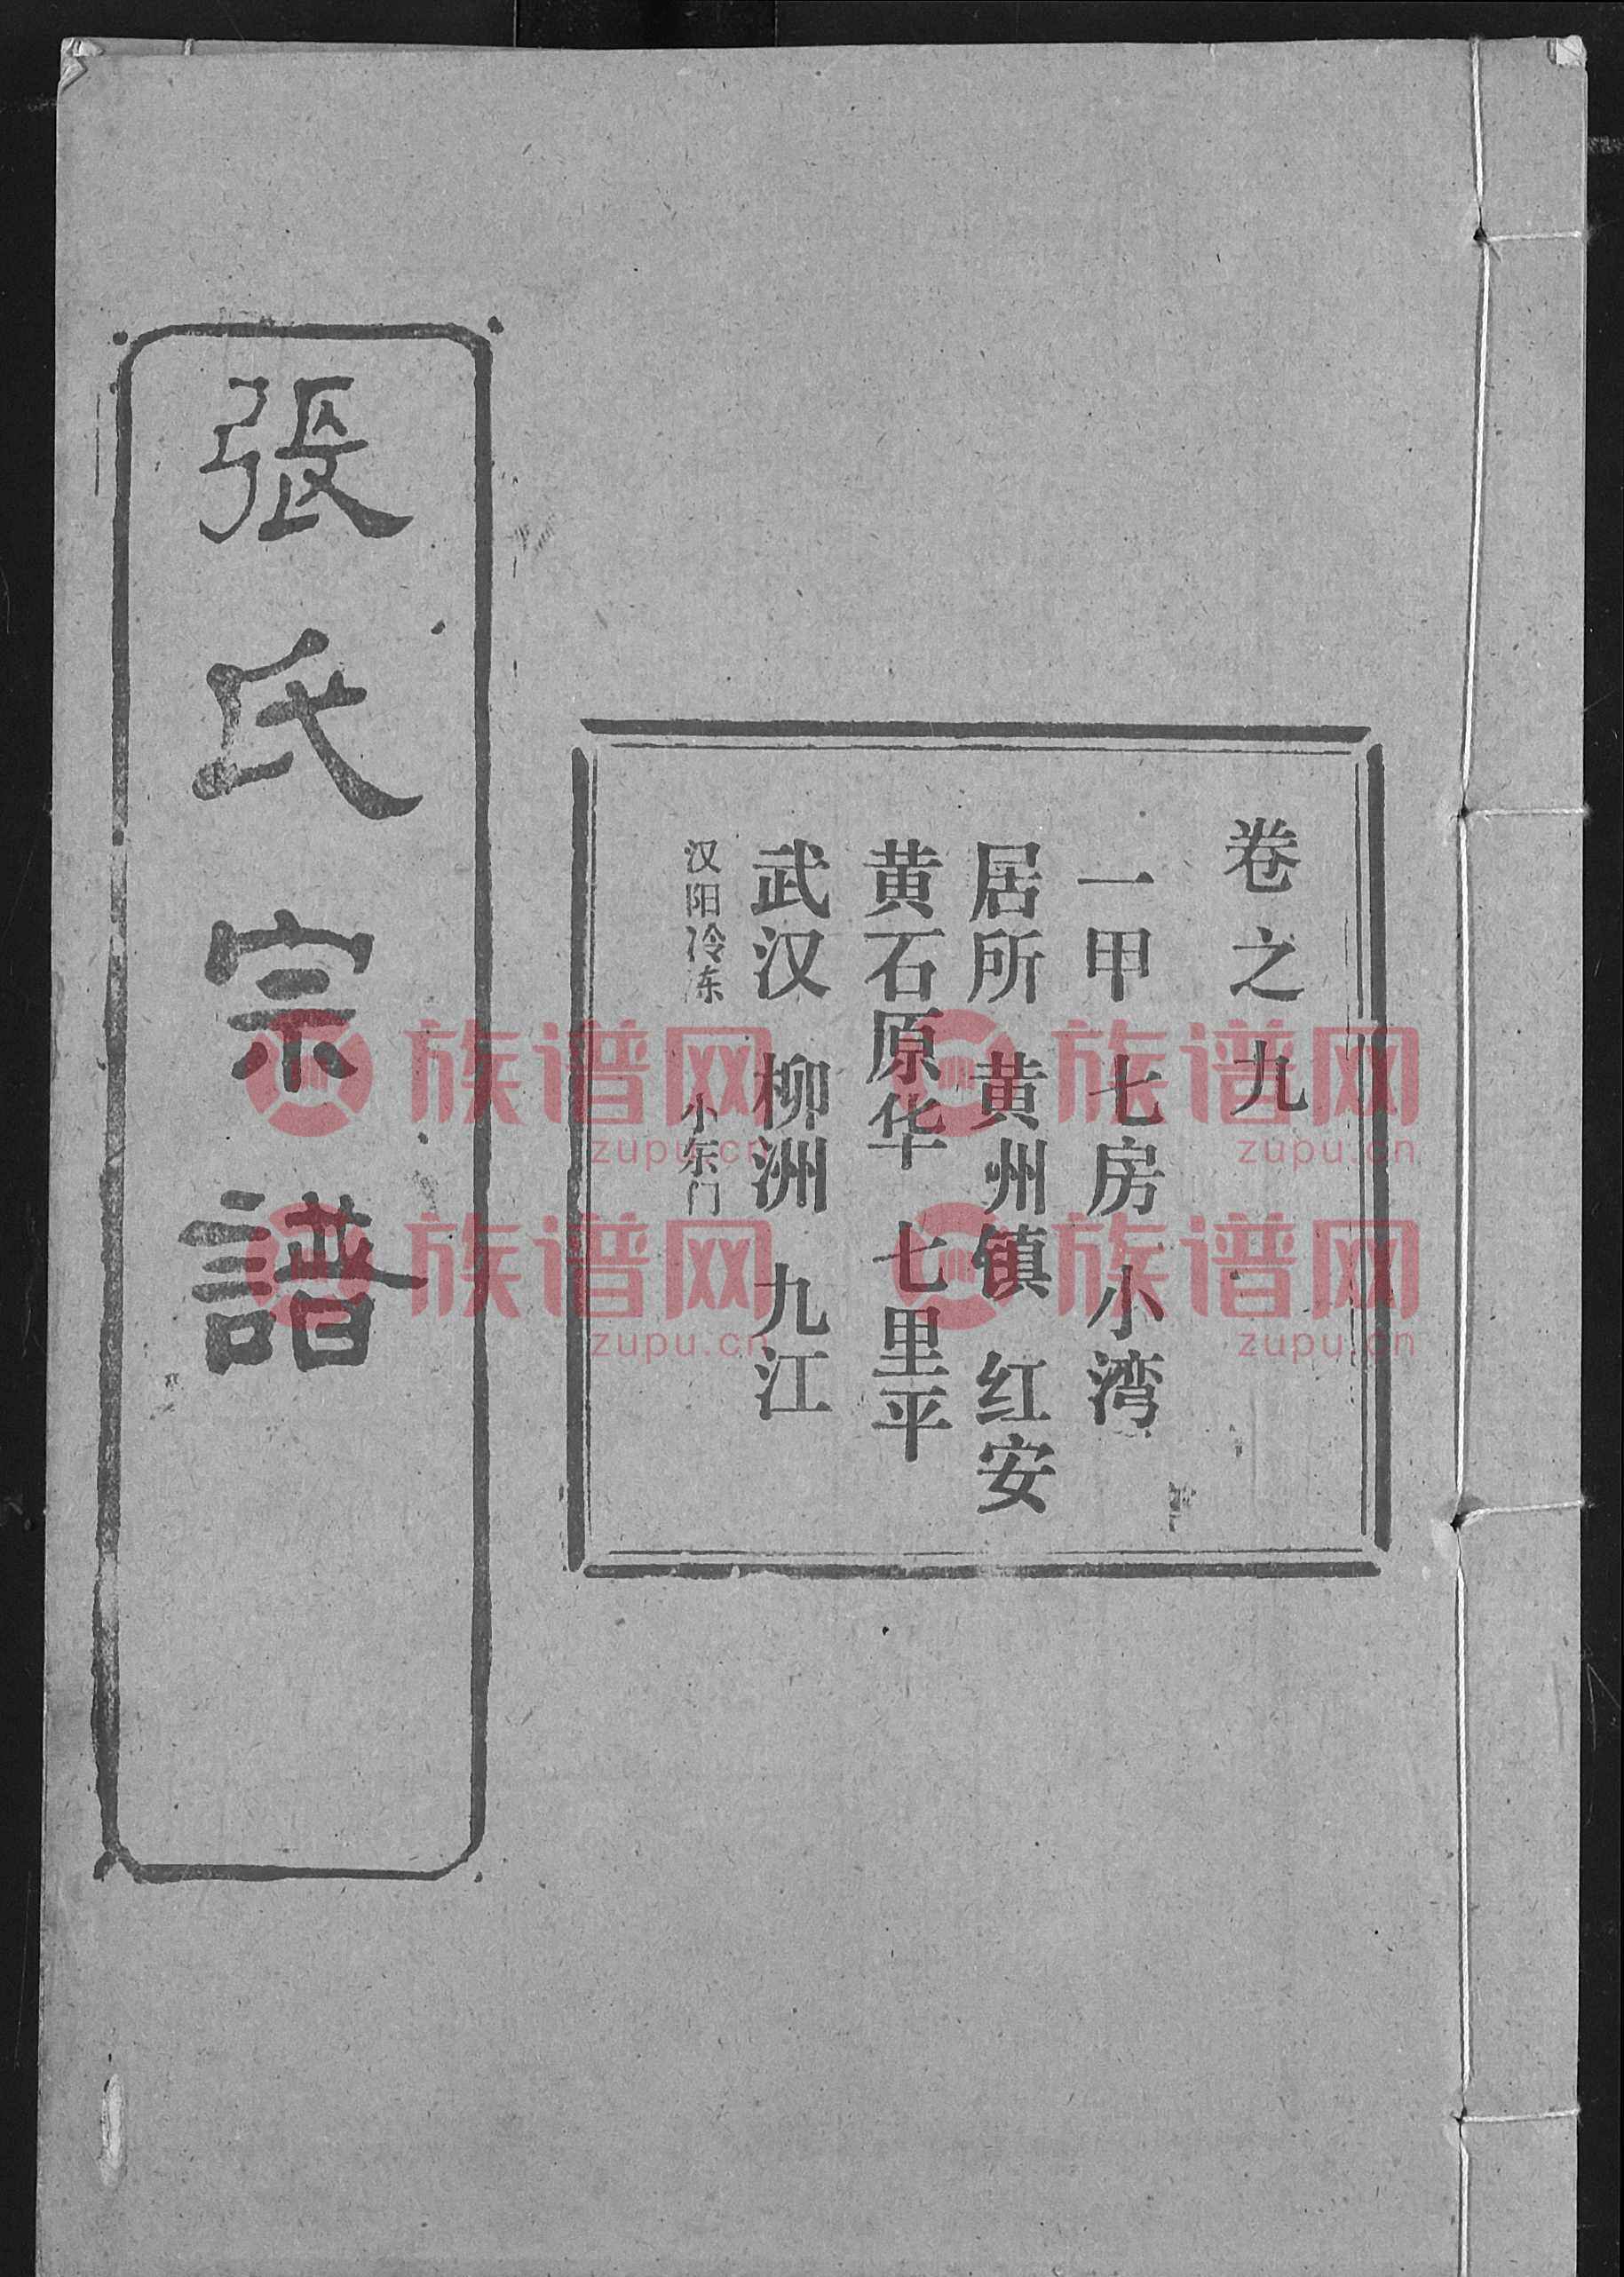 卷之九
一甲 七房 小湾
居所 黄州镇 红安
黄石原华 七里平
武汉 柳洲 九江
汉阳冷冻 小东门
張氏宗譜
族谱网 族谱网
zupu.cn zupu.cn
族谱网 族谱网
zupu.cn zupu.cn